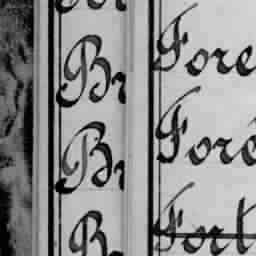 Br
Br
Br
Fore
Foré
Fort